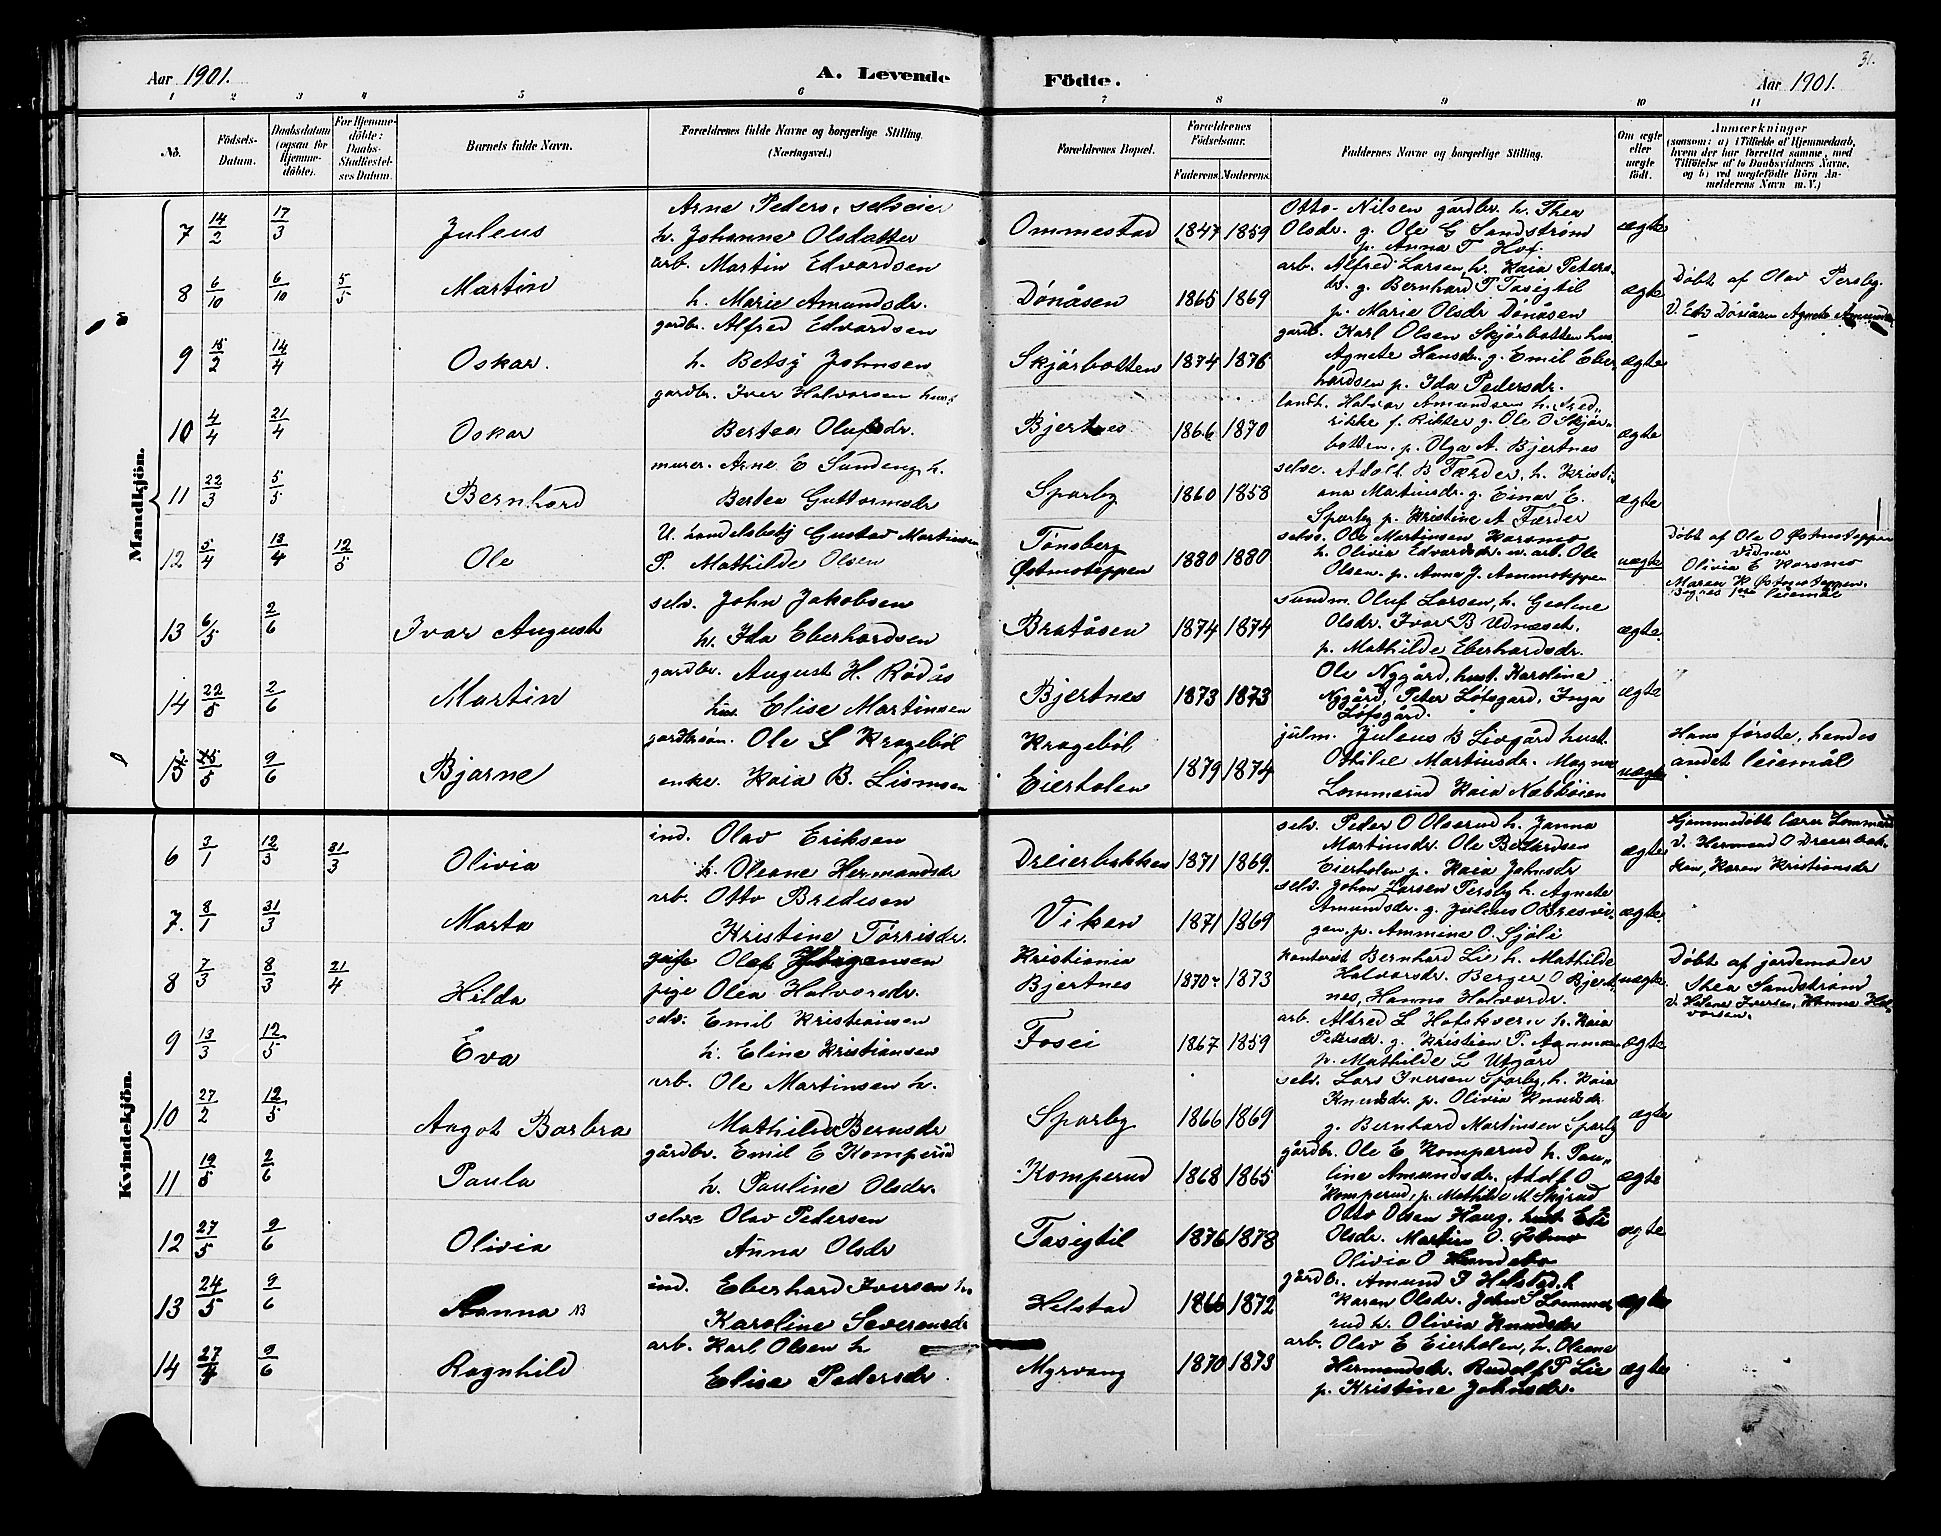 Aar 1901. A. Levende Födte. Aar 1901.
31.
1 2 3 4 5 6 7 8 9 10 11
No.
Födsels-Datum.
Daabsdatum (ogsaa for Hjemmedöbte).
For Hjemmedöbte: Daabs-Stadfæstelses Datum.
Barnets fulde Navn.
Forældrenes fulde Navne og borgerlige Stilling. (Næringsvei.)
Forældrenes Bopæl.
Forældrenes Födselsaar.
Faderens. Moderens.
Faddernes Navne og borgerlige Stilling.
Om ægte eller uægte födt.
Anmærkninger
(saasom: a) i Tilfælde af Hjemmedaab, hvem der har forrettet samme, med Tilföielse af to Daabsvidners Navne, og b) ved uægtefödte Börn Anmelderens Navn m. V.)
Mandkjön.
7 14/2 17/3 Juleus Arne Peders. selveier h. Johanne Olsdatter Ommestad 1847 1859 Otto Nilsen gårdbr. h. Thea Olsdr. g. Ole G Sandstrøm p. Anna T Hof. ægte
8 6/10 6/10 5/5 Martin arb. Martin Edvardsen h. Marie Amundsdr. Dønåsen 1865 1869 arb. Alfred Larsen, h. Kaia Petersdr. g. Bernhard T Tasigtil p. Marie Olsdr Dønåsen ægte Døbt af Olav Persby. V. Edv Dønåsen Agnete
9 15/2 14/4 Oskar. gardbr. Alfred Edvardsen h. Betsy Johnsen Skjørbotten 1874 1876 gardb. Karl Olsen Skjørbotten hus. Agnete Hansdr. g. Emil Eberhardsen p. Ida Pedersdr. ægte
10 4/4 21/4 Oskar gardbr. Iver Halvorsen Bertea Olufsdr. Bjertnes 1866 1870 landh. Halvor Amundsen h. Fredrikke g. Ole O Skjørbotten, p. Olga A. Bjertnes ægte
11 22/3 5/5 Bernhard murer. Arne E h. Bertea Guttormsdr Sparby 1860 1858 selve. Adolf B Færder, h. Kristiana Martinsdr. g. Einar E. Sparby p. Kristine A Færder ægte
12 5/4 18/4 12/5 Ole U. handelsbetj Gustav Martinsen P. Mathilde Olsen Tønsberg Østmoteppen 1880 1880 selve. Ole Martinsen Korsmo h. Olivia Edvardsdr. u. arb. Ole Olsen. p. Anna J. uægte Døbt af Ole O Østmoteppen vidner Olivia E Korsmo Maren K Østmoteppen. Begges 1ste leiemål
13 6/5 2/6 Ivar August selv. John Jakobsen h. Ida Eberhardsen Bratåsen 1874 1874 sundm. Oluf Larsen, h. Geoline Olsdr. Ivar B Udnæset. p. Mathilde Eberhardsdr. ægte.
14 22/5 2/6 Martin gardbr. August H. Rødås hus. Elise Martinsen Bjertnes 1873 1873 Ole Nygård, hust. Karoline Nygård, Peter Løfsgard, Inga Løfsgård. ægte
15 25/5 9/6 Bjarne gardbrsøn. Ole S Kragebøl enke. Kaia B. Kragebøl Eierholen 1879 1874 Juleus B Livgård hust. Othilie Martinsdr. Magnus Lommerud Kaia Næbbøien uægte Hans første, hendes andet leiemål
Kvindekjön.
6 3/1 12/3 31/3 Olivia ind. Olav Eriksen h. Oleane Hermandsdr Dreierbakken 1871 1869. selv. Peder O Olserud h. Janna Martinsdr. Ole Eierholen p. Kaia Johnsdr ægte Hjemmedøbt lærer Lommerud V. Hermand O Dreierbakken, Karen Kristiansdr
7. 8/1 31/3 Marta arb. Otto Bredesen Kristine Tørrisdr. Viken 1871 1869 selv. Johan Larsen Persby h. Agnete Amundsdr. g. Juleus O p. Ammine O. Sjøli ægte.
8 7/3 8/3 21/4 Hilda Olaf Jørgensen pige Olea Halvorsdr. Kristiania Bjertnes 1870 1873 kontorist Bernhard Lie h. Mathilde Halvorsdr. Berger O Bjertnes, Hanna Halvorsdr. uægte. Døbt af jordemoder Thea Sandstrøm v. Helene Iversen, Hanna Halvorsen.
9 13/3 12/5 Eva selv: Emil Kristiansen h. Eline Kristiansen Fosei 1867 1859 arb. Alfred L Hofskvern h. Kaia Petersdr. g. Kristian P. p. Mathilde L Utgård ægte
10 27/2 12/5 Angot Barbra arb. Ole Martinsen h. Mathilde Berntsdr Sparby 1866 1869 selv. Lars Iversen Sparby, h. Kaia Knudsdr. p. Olivia Knudsdr g. Bernhard Martinsen Sparby ægte
11 19/5 2/6 Paula gårdbr. Emil E Komperud h. Pauline Olsdr. Komperud 1868 1865 gårdbr. Ole E Komperud h. Pauline Amundsdr. Adolf O Komperud, p. Mathilde M ægte
12 27/5 9/6 Olivia selve Olav Pedersen Anna Olsdr Tasigtil 1876 1878 Otto Olsen Haug. hust. Eli Olsdr. Martin O. Østmo Olivia O ægte
13 24/5 9/6 Hanna NB ind. Eberhard Iversen h. Karoline Severensdr Helstad 1866 1872 gårdbr. Amund I Helstad, h Karen Olsdr. John S Lommerud h. Olivia Knudsdr ægte
14 27/4 9/6 Ragnhild arb. Karl Olsen h Elise Pedersdr. Myrvang 1870 1873 arb. Olav E Eierholen, h. Oleane Hermandsdr. Rudolf P Lie p. Kristine Johnsdr. ægte